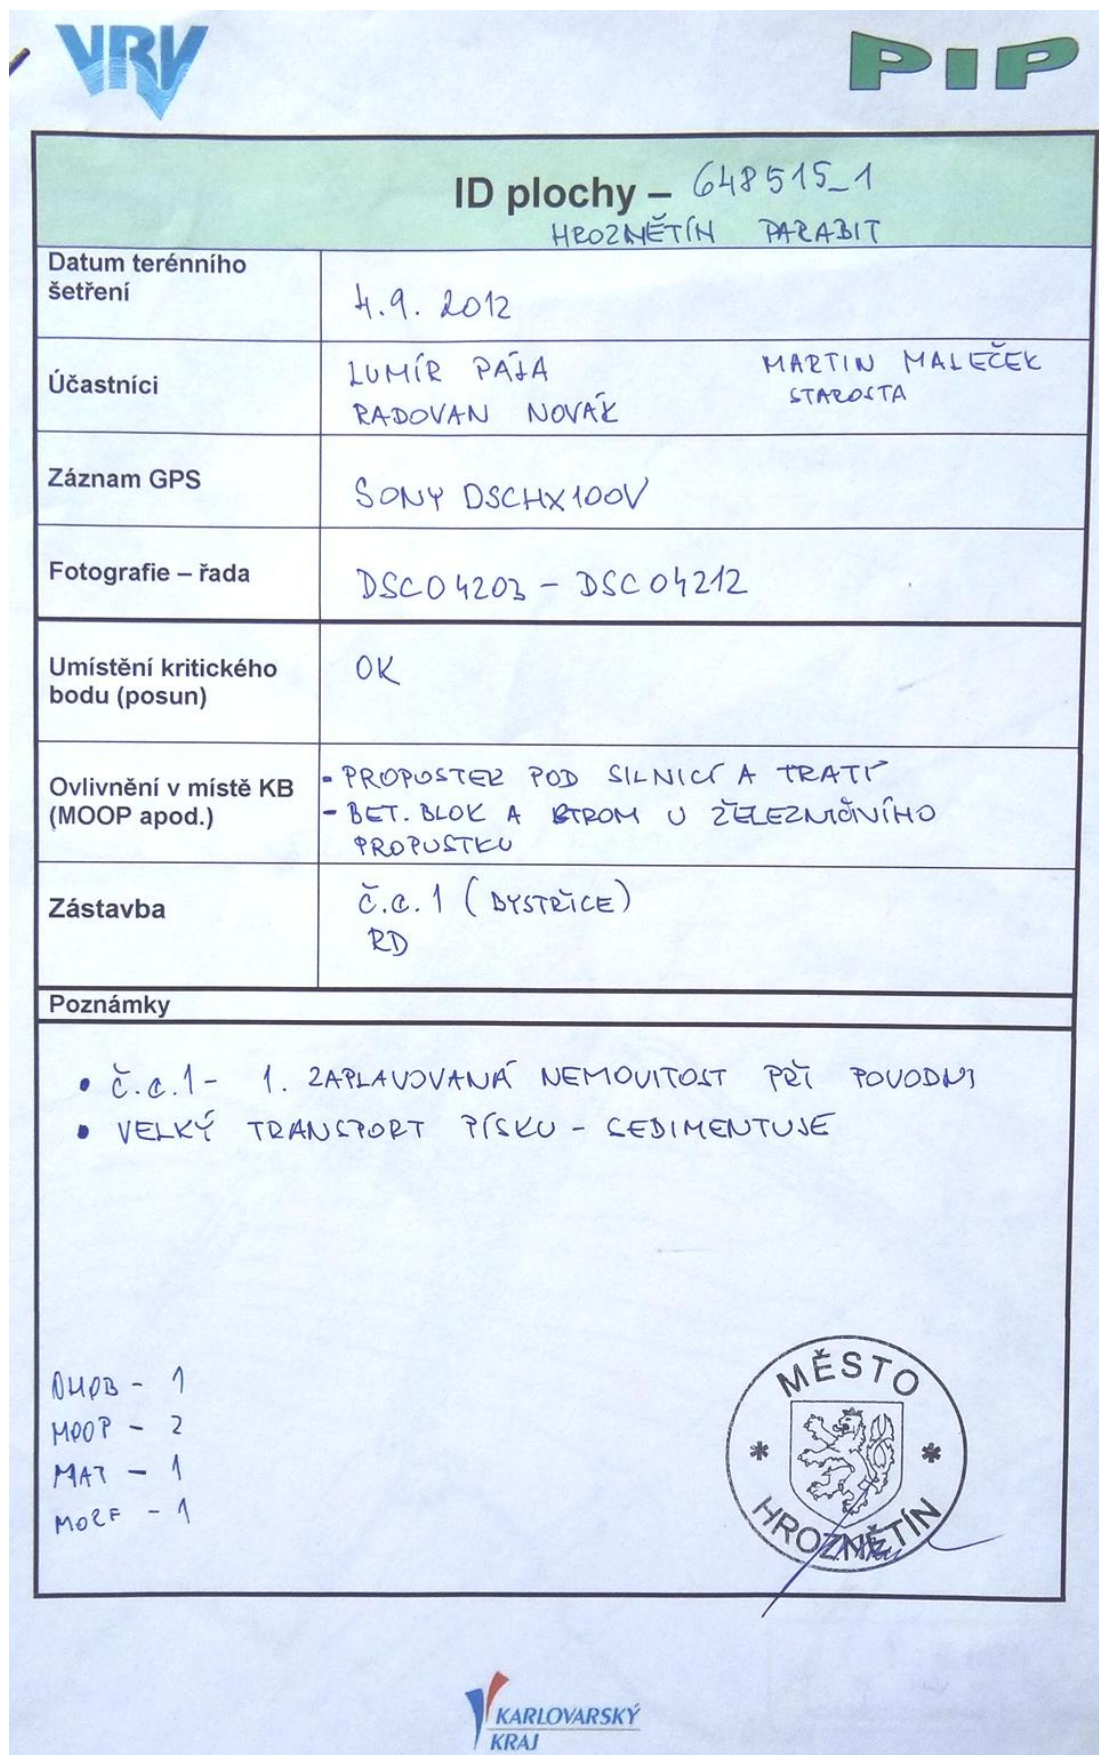 VRV
PIP
ID plochy – 648515_1
HROZNĚTÍN PARABIT
Datum terénního
šetření
4.9. 2012
Účastníci
LUMÍR PÁJA
MARTIN MALEČEK
RADOVAN NOVÁK
STAROSTA
Záznam GPS
SONY DSCHX100V
Fotografie – řada
DSC04203 – DSC04212
Umístění kritického
bodu (posun)
OK
Ovlivnění v místě KB
(MOOP apod.)
- PROPUSTEK POD SILNICÍ A TRATÍ
- BET. BLOK A STROM U ŽELEZNIČNÍHO
PROPUSTKU
Zástavba
Č.e. 1 (BYSTŘICE)
RD
Poznámky
• Č.e. 1 - 1. ZAPLAVOVANÁ NEMOVITOST PŘI POVODNI
• VELKÝ TRANSPORT PÍSKU - SEDIMENTUJE
MOOP - 2
MAT - 1
MORF - 1
MĚSTO
* *
HROZNĚTÍN
KARLOVARSKÝ
KRAJ